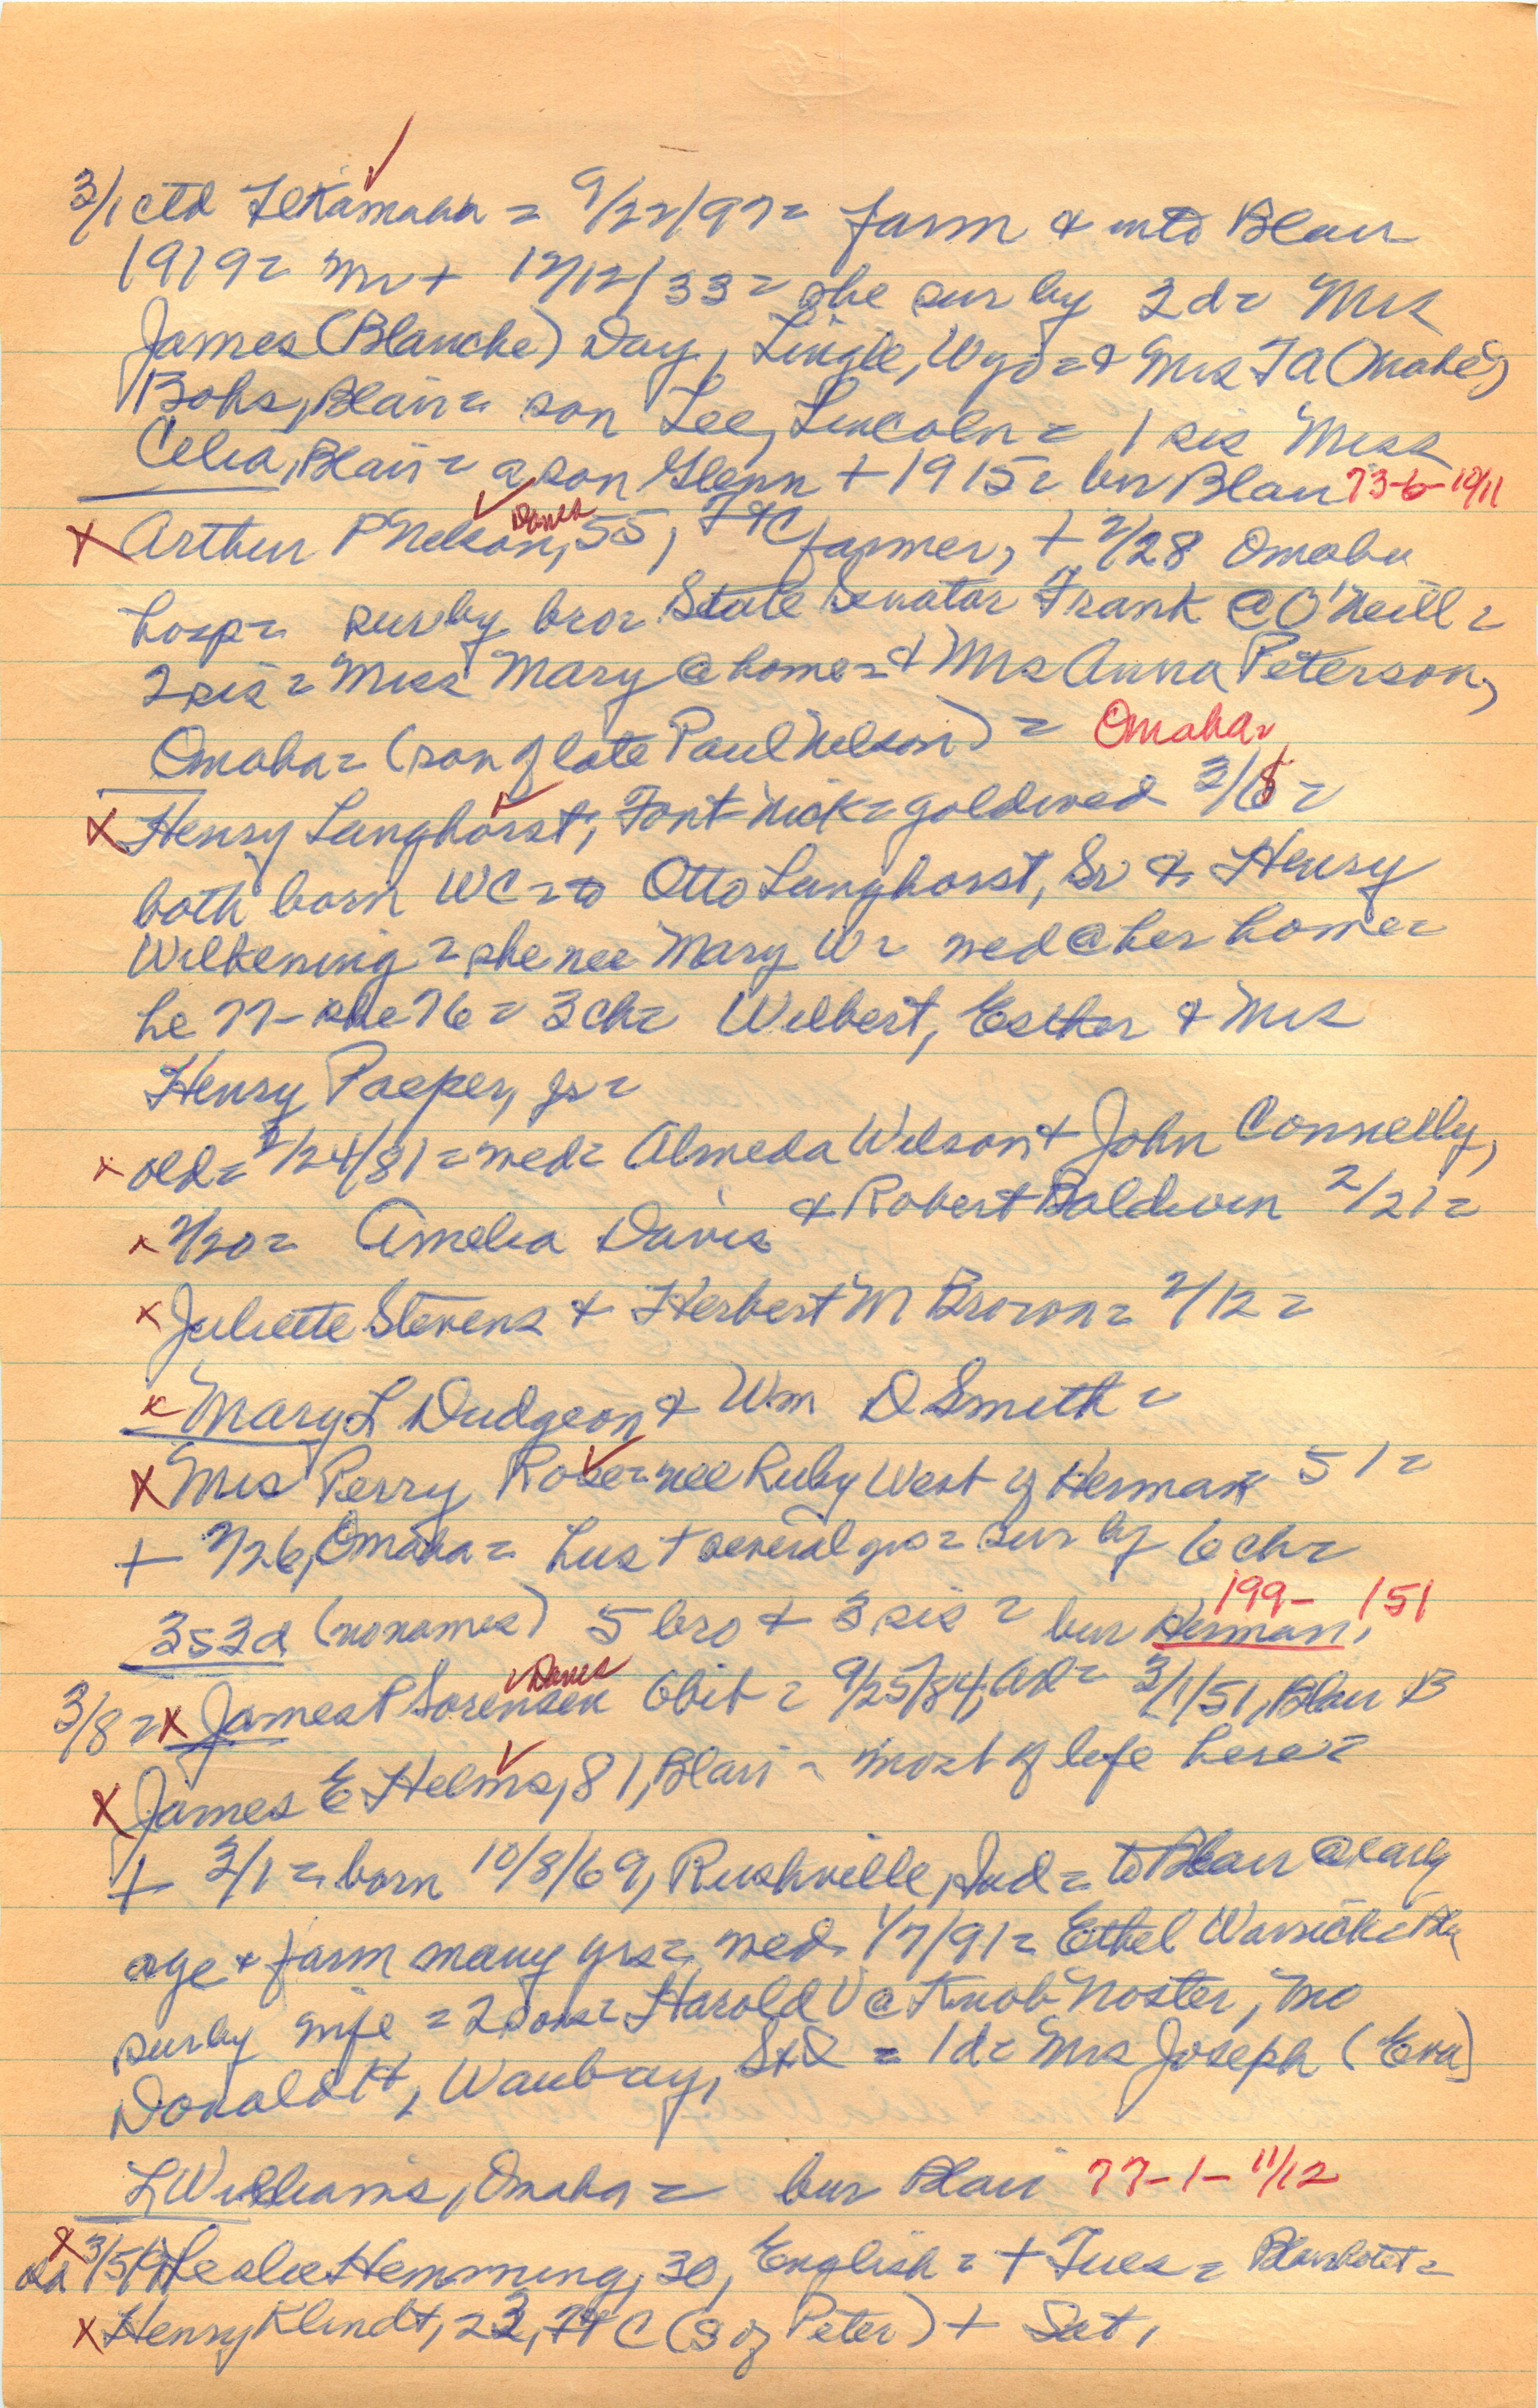 3/1 ctd Tekamah = 9/22/97 = farm & into Blair
1919 = Mr + 12/12/33 = she sur by 2d = Mrs
James (Blanche) Day, Lingle, Wyo = & Mrs F A (Mabel)
Bohs, Blair = son Lee, Lincoln = 1 sis Miss
Celia, Blair = a son Glenn + 1915 = bur Blair 73-6-10/11
X Arthur P Nelson, 55, Ft C farmer, + 2/28 Omaha
Danes
hosp = sur by bro = State Senator Frank @ O'Neill =
2 sis = Miss Mary @ home = & Mrs Anna Peterson,
Omaha = (son of late Paul Nelson) = Omaha =
X Henry Langhorst, Font-Nick = gold wed 3/8 =
both born WC = to Otto Langhorst, Sr & Henry
Wilkening = she nee Mary W = wed @ her home =
he 77 - she 76 = 3 ch = Wilbert, Esther & Mrs
Henry Paeper, Jr =
x old = 2/24/81 = wed = Almeda Wilson & John Connelly,
x 2/20 = Amelia Davis & Robert Baldwin 2/21 =
x Juliette Stevens & Herbert M Brown = 2/12 =
x Mary L Dudgeon & Wm D Smith =
X Mrs Perry Rose = nee Ruby West of Herman = 51 =
+ 2/26, Omaha = hus + several yrs = sur by 6 ch =
3s 3d (no names) 5 bro & 3 sis = bur Herman, 199- 151
3/8 = X James P Sorensen Obit = 9/25/84, = 3/1/51, Blair B
Danes
X James E Helms, 81, Blair - most of life here =
+ 3/1 = born 10/8/69, Rushville, Ind = to Blair @ early
age & farm many yrs = wed 1/7/91 = Ethel Warrick =
sur by wife = 2 sons = Harold V @ Knob Noster, Mo
Donald H, Waubay, S D = 1d = Mrs Joseph (Eva)
L Williams, Omaha = bur Blair 77-1-11/12
X old 3/5/ Leslie Hemming, 30, English = + Tues = Blair hotel =
X Henry Klindt, 23, Ft C (s of Peter) + Sat,